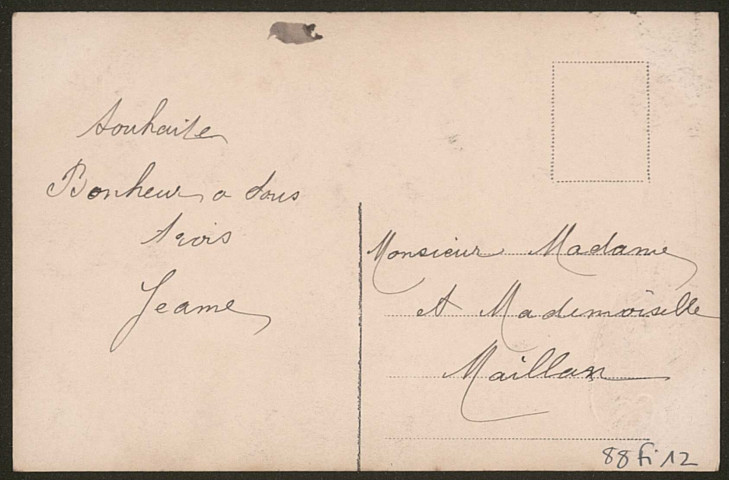 souhaite
Bonheur a tous
trois
Jeanne
Monsieur Madame
et Mademoiselle
Maillan
88 fi 12